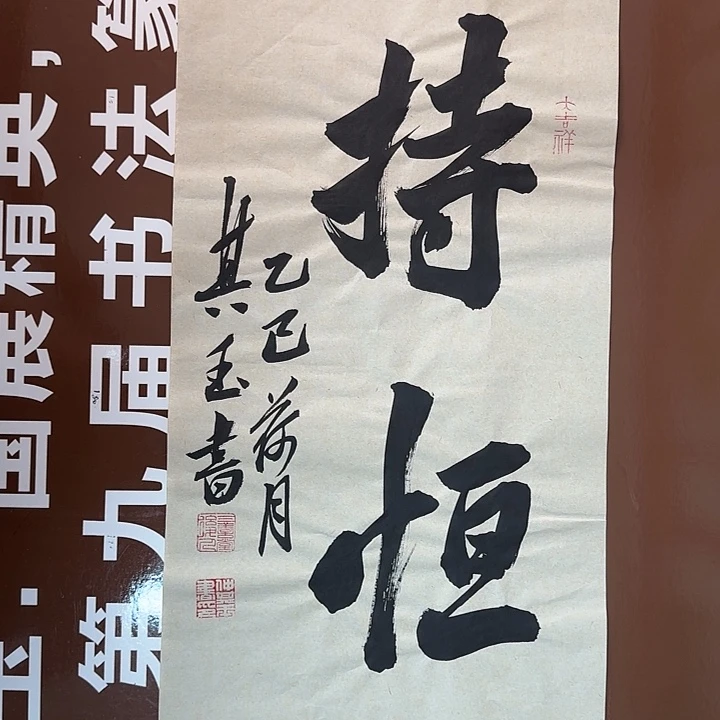 大吉祥
持恒
乙巳荷月
其玉书
第九届书法篆
玉·国展精英,